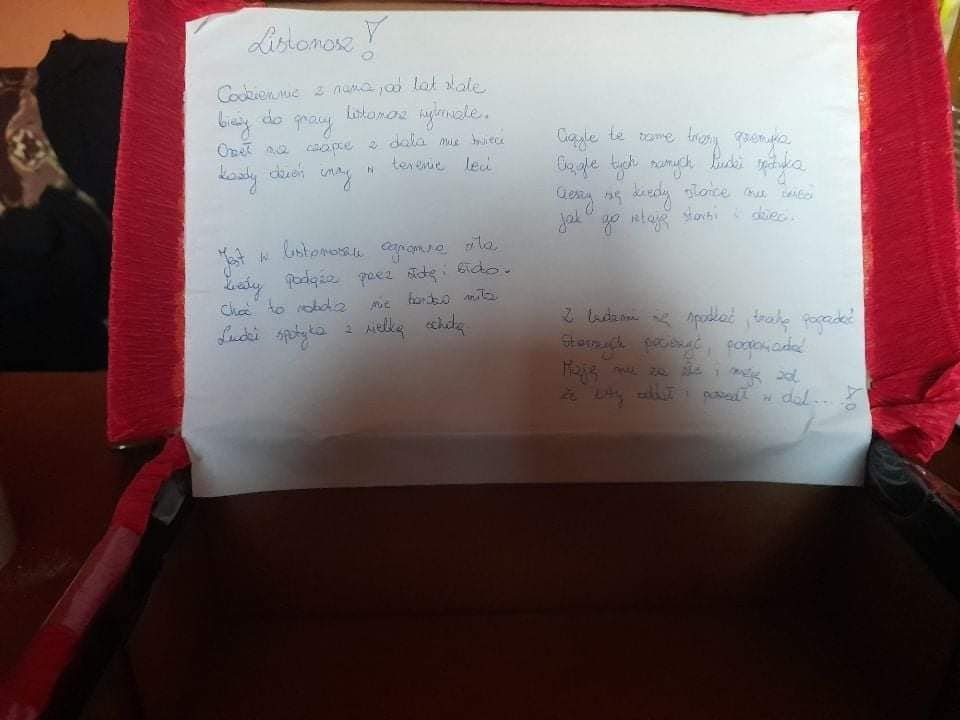 Listonosz!
Codziennie z rana, od lat stale
bieży do pracy listonosz wytrwale.
Orzeł na czapce z dala mu świeci
każdy dzień inny w terenie leci
Jest w listonoszu ogromna siła
kiedy podąża przez słotę i
Choć to robota nie bardzo miła
Ludzi spotyka z wielką ochotą.
Ciągle te same trasy przemyka
Ciągle tych samych ludzi spotyka
Cieszy się kiedy słońce mu świeci
jak go witają starsi i dzieci.
Z ludźmi się spotkać, trochę pogadać
Starszych pocieszyć, popowiadać
Mają mu za złe i mają żal
że listy oddał i poszedł w dal....!